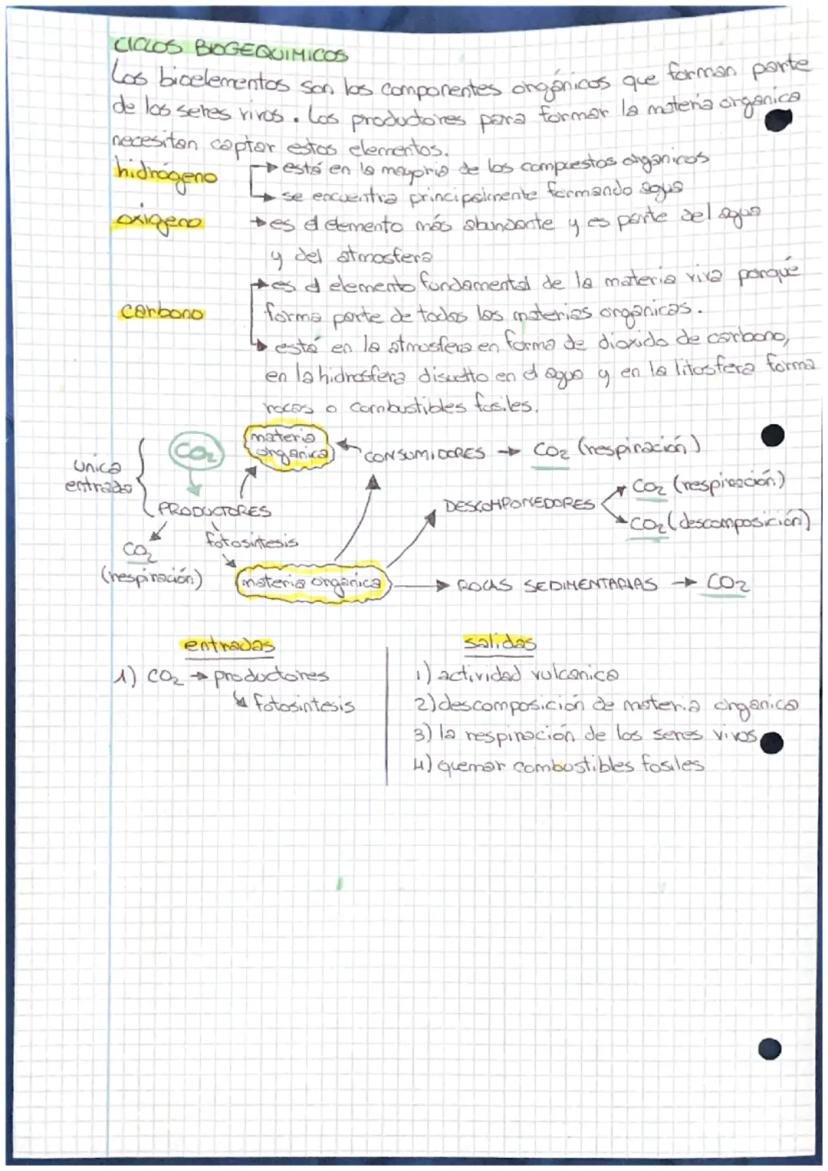 CICLOS BIOGEQUIMICOS
Los bioelementos son los componentes orgánicos que forman parte
de los seres vivos. Los productores para formar la materia organica
necesitan captar estos elementos.
hidrógeno → está en la mayoria de los compuestos organicos
→ se encuentra principalmente formando agua
oxigeno → es el elemento más abundante y es parte del agua
y del atmosfera
→ es el elemento fundamental de la materia viva porqué
carbono forma parte de todas las materias orgánicas.
→ está en la atmosfera en forma de dioxido de carbono,
en la hidrosfera disuelto en el agua y en la litosfera forma
rocas o combustibles fosiles.
unica entrada
CO2
materia organica
CONSUMIDORES → CO2 (respiración)
PRODUCTORES
DESCOMPONEDORES
CO2 (respiración)
CO2 (descomposición)
fotosintesis
CO2
(respiración)
materia organica → ROCAS SEDIMENTARIAS → CO2
entradas
1) CO2 → productores
↳ fotosintesis
salidas
1) actividad vulcanica
2) descomposición de materia organica
3) la respiración de los seres vivos
4) quemar combustibles fosiles